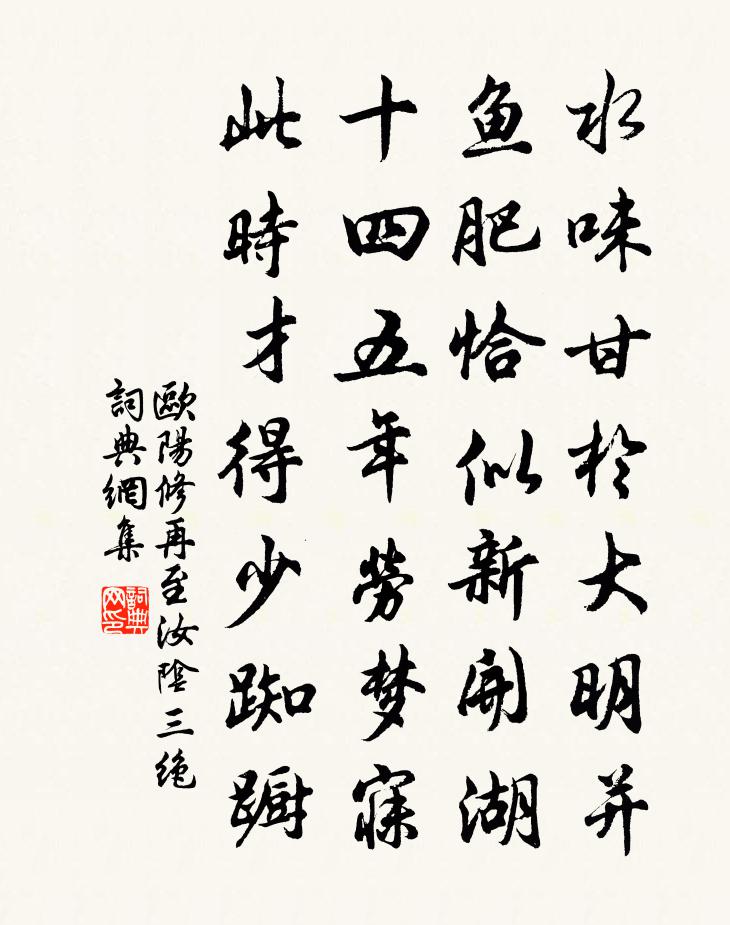 水味甘於大明井
魚肥恰似新開湖
十四五年勞梦寐
此時才得少踟躕
歐陽修再至汝陰三絶
詞典網集
詞典网印